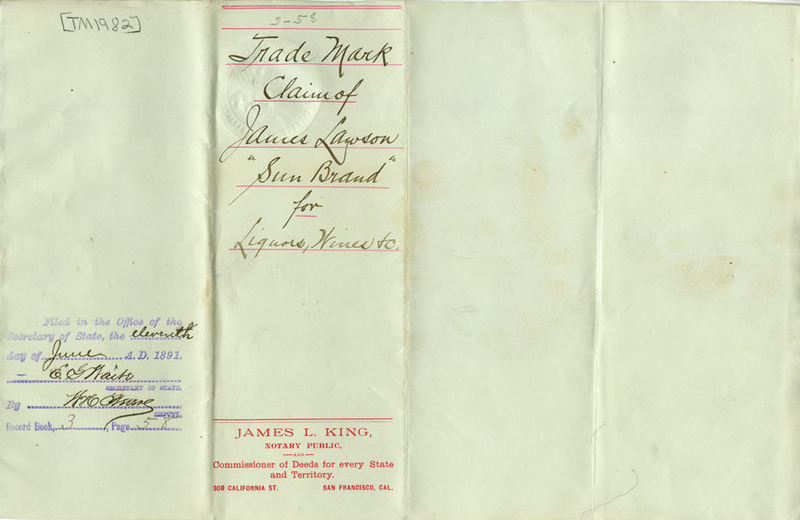 [TM1982]
Filed in the Office of the
Secretary of State, the eleventh
day of June A.D. 1891.
E G Waite
SECRETARY OF STATE.
By W H
DEPUTY.
Record Book, 3, Page 58
3-58
Trade Mark
Claim of
James Lawson
"Sun Brand"
for
Liquors, Wines &c.
JAMES L. KING,
NOTARY PUBLIC,
—AND—
Commissioner of Deeds for every State
and Territory.
308 CALIFORNIA ST. SAN FRANCISCO, CAL.